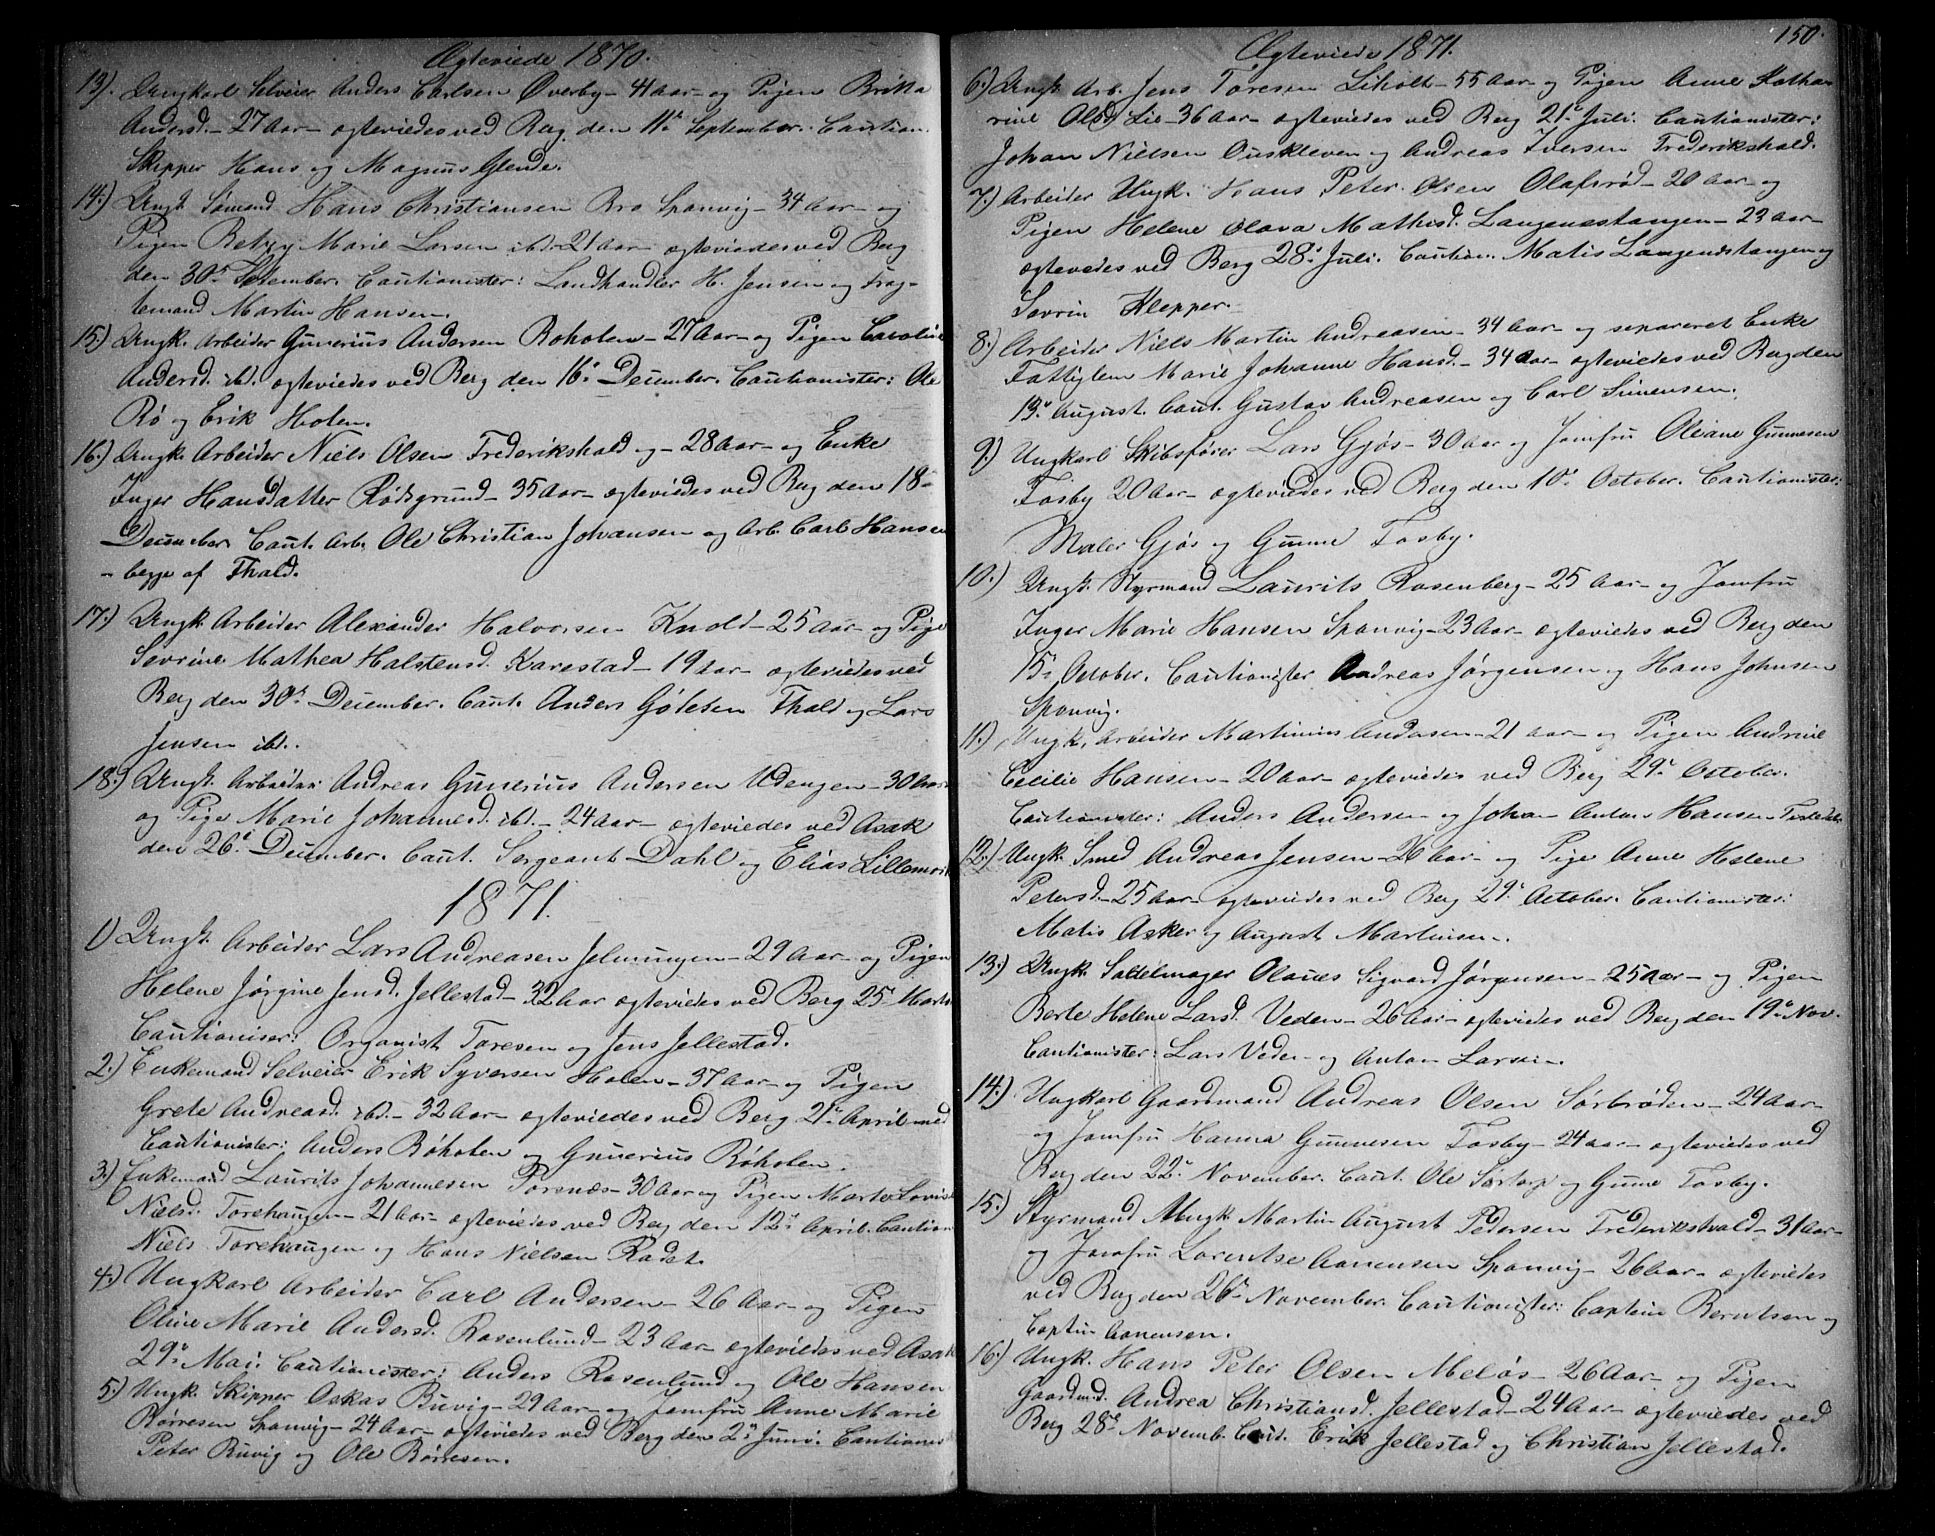 Ægteviede 1870.
13.) Ungkarl Selveier Anders Carlsen Øverby – 41 Aar – og Pigen Britta
Andersd. – 27 Aar – ægteviedes ved Berg den 11te September. Caution.
Skipper Hans og Magnus Glende.
14.) Ungk. Sømand Hans Christiansen Bro Sponvig – 34 Aar – og
Pigen Betzy Marie Larsen ibd. – 21 Aar – ægteviedes ved Berg
den 30te Setember. Cautionister: Landhandler H. Jensen og Frag-
temand Martin Hansen.
15.) Ungk. Arbeider Gunerius Andersen Roholen – 27 Aar – og Pigen Caroline
Andersd. ibd. ægteviedes ved Berg den 16de December. Cautionister: Ole
Rø og Erik Holen.
16.) Ungk. Arbeider Niels Olsen Frederikshald og – 28 Aar – og Enke
Inger Hansdatter Rødsgrund – 35 Aar – ægteviedes ved Berg den 18de
December. Caut. Arb. Ole Christian Johansen og Arb. Carl Hansen
– begge af Fhald.
17.) Ungk. Arbeider Alexander Halvorsen Knold – 25 Aar – og Pige
Sevrine Mathea Halstensd. Karestad – 19 Aar – ægteviedes ved
Berg den 30te December. Caut. Anders Gølesen Fhald og Lars
Jensen ibd.
18.) Ungk. Arbeider Andreas Gunerius Andersen Udengen – 30 Aar
og Pige Marie Johannesd. ibd. – 24 Aar – ægteviedes ved Asak
den 26de December. Caut. Sergeant Dahl og Elias Lillemo
1871.
1) Ungk. Arbeider Lars Andreasen Jelmungen – 29 Aar – og Pigen
Helene Jørgine Jensd. Jellestad – 32 Aar ægteviedes ved Berg 25de Marts
Cautioniser: Organist Toresen og Jens Jellestad.
2.) Enkemand Selveier Erik Syversen Holen – 37 Aar – og Pigen
Grete Andreasd. ibd. – 32 Aar – ægteviedes ved Berg 21de April med
Cautionister: Anders Røholen og Gunerius Røholen.
3.) Enkemand Laurits Johannesen Torsnæs – 30 Aar og Pigen Marte Lovise
Nielsd. Torehaugen – 21 Aar – ægteviedes ved Berg den 12te April. Caution
Niels Torehaugen og Hans Nielsen Rødst.
4.) Ungkarl Arbeider Carl Andersen – 26 Aar – og Pigen
Oline Marie Andersd. Rosenlund – 23 Aar – ægteviedes ved Asak
29de Mai. Cautionister: Anders Rosenlund og Ole Hansen
5.) Ungk. Skipper Oskas Buvig – 29 Aar – og Jomfru Anne Marie
Børresen Sponvig – 24 Aar – ægteviedes ved Berg den 2de Juni. Cautioner
Peter Buvig og Ole Børresen.
150.
Ægteviede 1871.
6.) Ungk. Arb. Jens Toresen Liholt – 55 Aar – og Pigen Anne Katha-
rine Olsd. Lie – 36 Aar – ægteviedes ved Berg 21de Juli. Cautionister:
Johan Nielsen Ouskleven og Andreas Iversen Frederikshald.
7.) Arbeider Ungk. Hans Peter Olsen Olafsrød – 20 Aar – og
Pigen Helene Olava Mathisd. Langenestangen – 23 Aar –
ægtevedes ved Berg 28de Juli. Caution. Matis Langenestangen og
Sevrin Klepper.
8.) Arbeider Niels Martin Andreasen – 34 Aar – og separeret Enke
Fattiglem Marie Johanne Hansd. – 34 Aar – ægteviedes ved Berg den
13de August. Caut. Gustav Andreasen og Carl Simensen.
9.) Ungkarl Skibsfører Lars Gjøs – 30 Aar og Jomfru Oliane Gunnesen
Fosby 20 Aar – ægteviedes ved Berg den 10de October. Cautionister:
Maler Gjøs og Gunne Fosby.
10.) Ungk. Styrmand Laurits Rosenberg – 25 Aar – og Jomfru
Inger Marie Hansen Sponvig – 23 Aar – ægteviedes ved Berg den
15de October. Cautionister Andreas Jørgensen og Hans Johnsen
Sponvig.
11.) Ungk. Arbeider Martinius Andersen – 21 Aar – og Pigen Andrine
Cecilie Hansen – 20 Aar – ægteviedes ved Berg 29de October.
Cautionister: Anders Andersen og Johan Anton Hansen
12.) Ungk. Smed Andreas Jensen – 26 Aar – og Pige Anne Helene
Petersd. – 25 Aar – ægteviedes ved Berg 29de October. Cautionister:
Matis Asker og August Martinsen.
13.) Ungk. Sadelmager Olaves Sigvard Jørgensen – 25 Aar – og Pigen
Berte Helene Larsd. Veden – 26 Aar – ægteviedes ved Berg den 19de Nov.
Cautionister: Lars Veden og Anton Larsen.
14.) Ungkarl Gaardmand Andreas Olsen Sørbrøden – 24 Aar –
og Jomfru Hanna Gunnesen Fosby – 24 Aar – ægteviedes ved
Berg den 22de November. Caut. Ole Sørtorp og Gunne Fosby.
15.) Styrmand Ungk. Martin August Pedersen Frederikshald – 31 Aar –
og Jomfru Lorentse Aanensen Sponvig – 26 Aar – ægteviedes
ved Berg den 26de November. Cautionister: Captein Berntsen og
Captin Aanensen.
16.) Ungk. Hans Peter Olsen Meløs – 26 Aar – og Pigen
Gaardmd. Andrea Christiansd. Jellestad – 24 Aar – ægteviedes ved
Berg 28de Novemb. Caut. Erik Jellestad og Christian Jellestad.